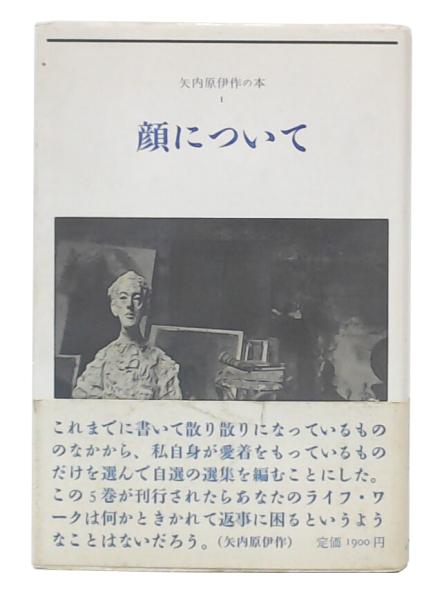 矢内原伊作の本
1
顔について
これまでに書いて散り散りになっているもの
のなかから、私自身が愛着をもっているもの
だけを選んで自選の選集を編むことにした。
この5巻が刊行されたらあなたのライフ・ワ
ークは何かときかれて返事に困るというよう
なことはないだろう。(矢内原伊作) 定価 1900 円